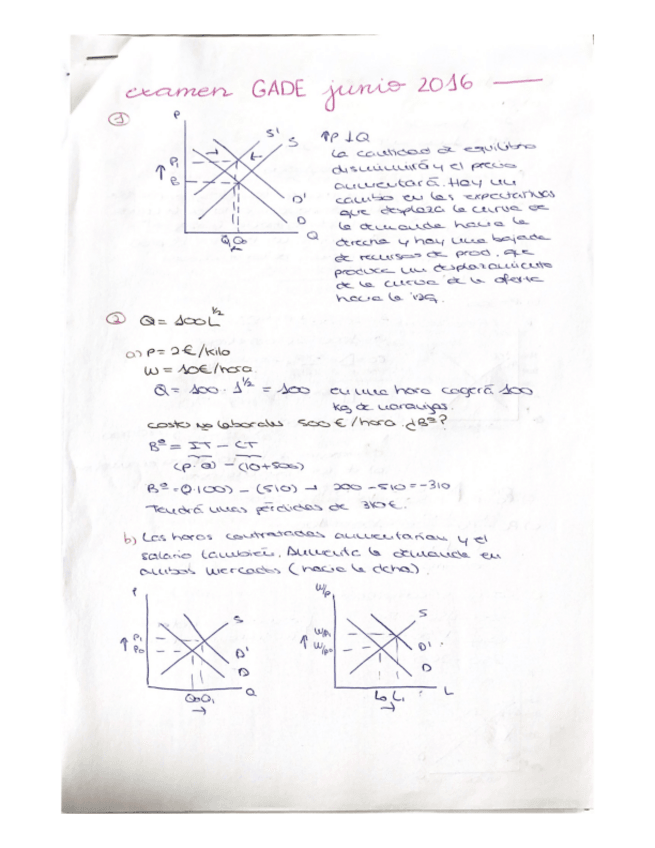 examen GADE junio 2016
①
P
S'
S
P₁
P₀
D'
D
Q₁ Q₀
Q
↑P ↓Q
la cantidad de equilibrio
disminuirá y el precio
aumentará. Hay un
cambio en las expectativas
que desplaza la curva de
la demanda hacia la
derecha y hay una bajada
de recursos de prod. que
produce un desplazamiento
de la curva de la oferta
hacia la izq.
② Q = 100L^1/2
a) P = 2€/kilo
W = 10€/hora
Q = 100 · 1^1/2 = 100 en una hora cogerá 100
kg de naranjas.
costes no laborales 500€/hora. ¿Bº?
Bº = IT - CT
(P·Q) - (10+500)
Bº = (2·100) - (510) → 200 - 510 = -310
Tendrá unas pérdidas de 310€.
b) Las horas contratadas aumentarían y el
salario también. Aumenta la demanda en
ambos mercados (hacia la dcha).
P
S
P₁
P₀
D'
D
Q₀ Q₁
Q
W/P
S
W/P₁
W/P₀
D'
D
L₀ L₁
L